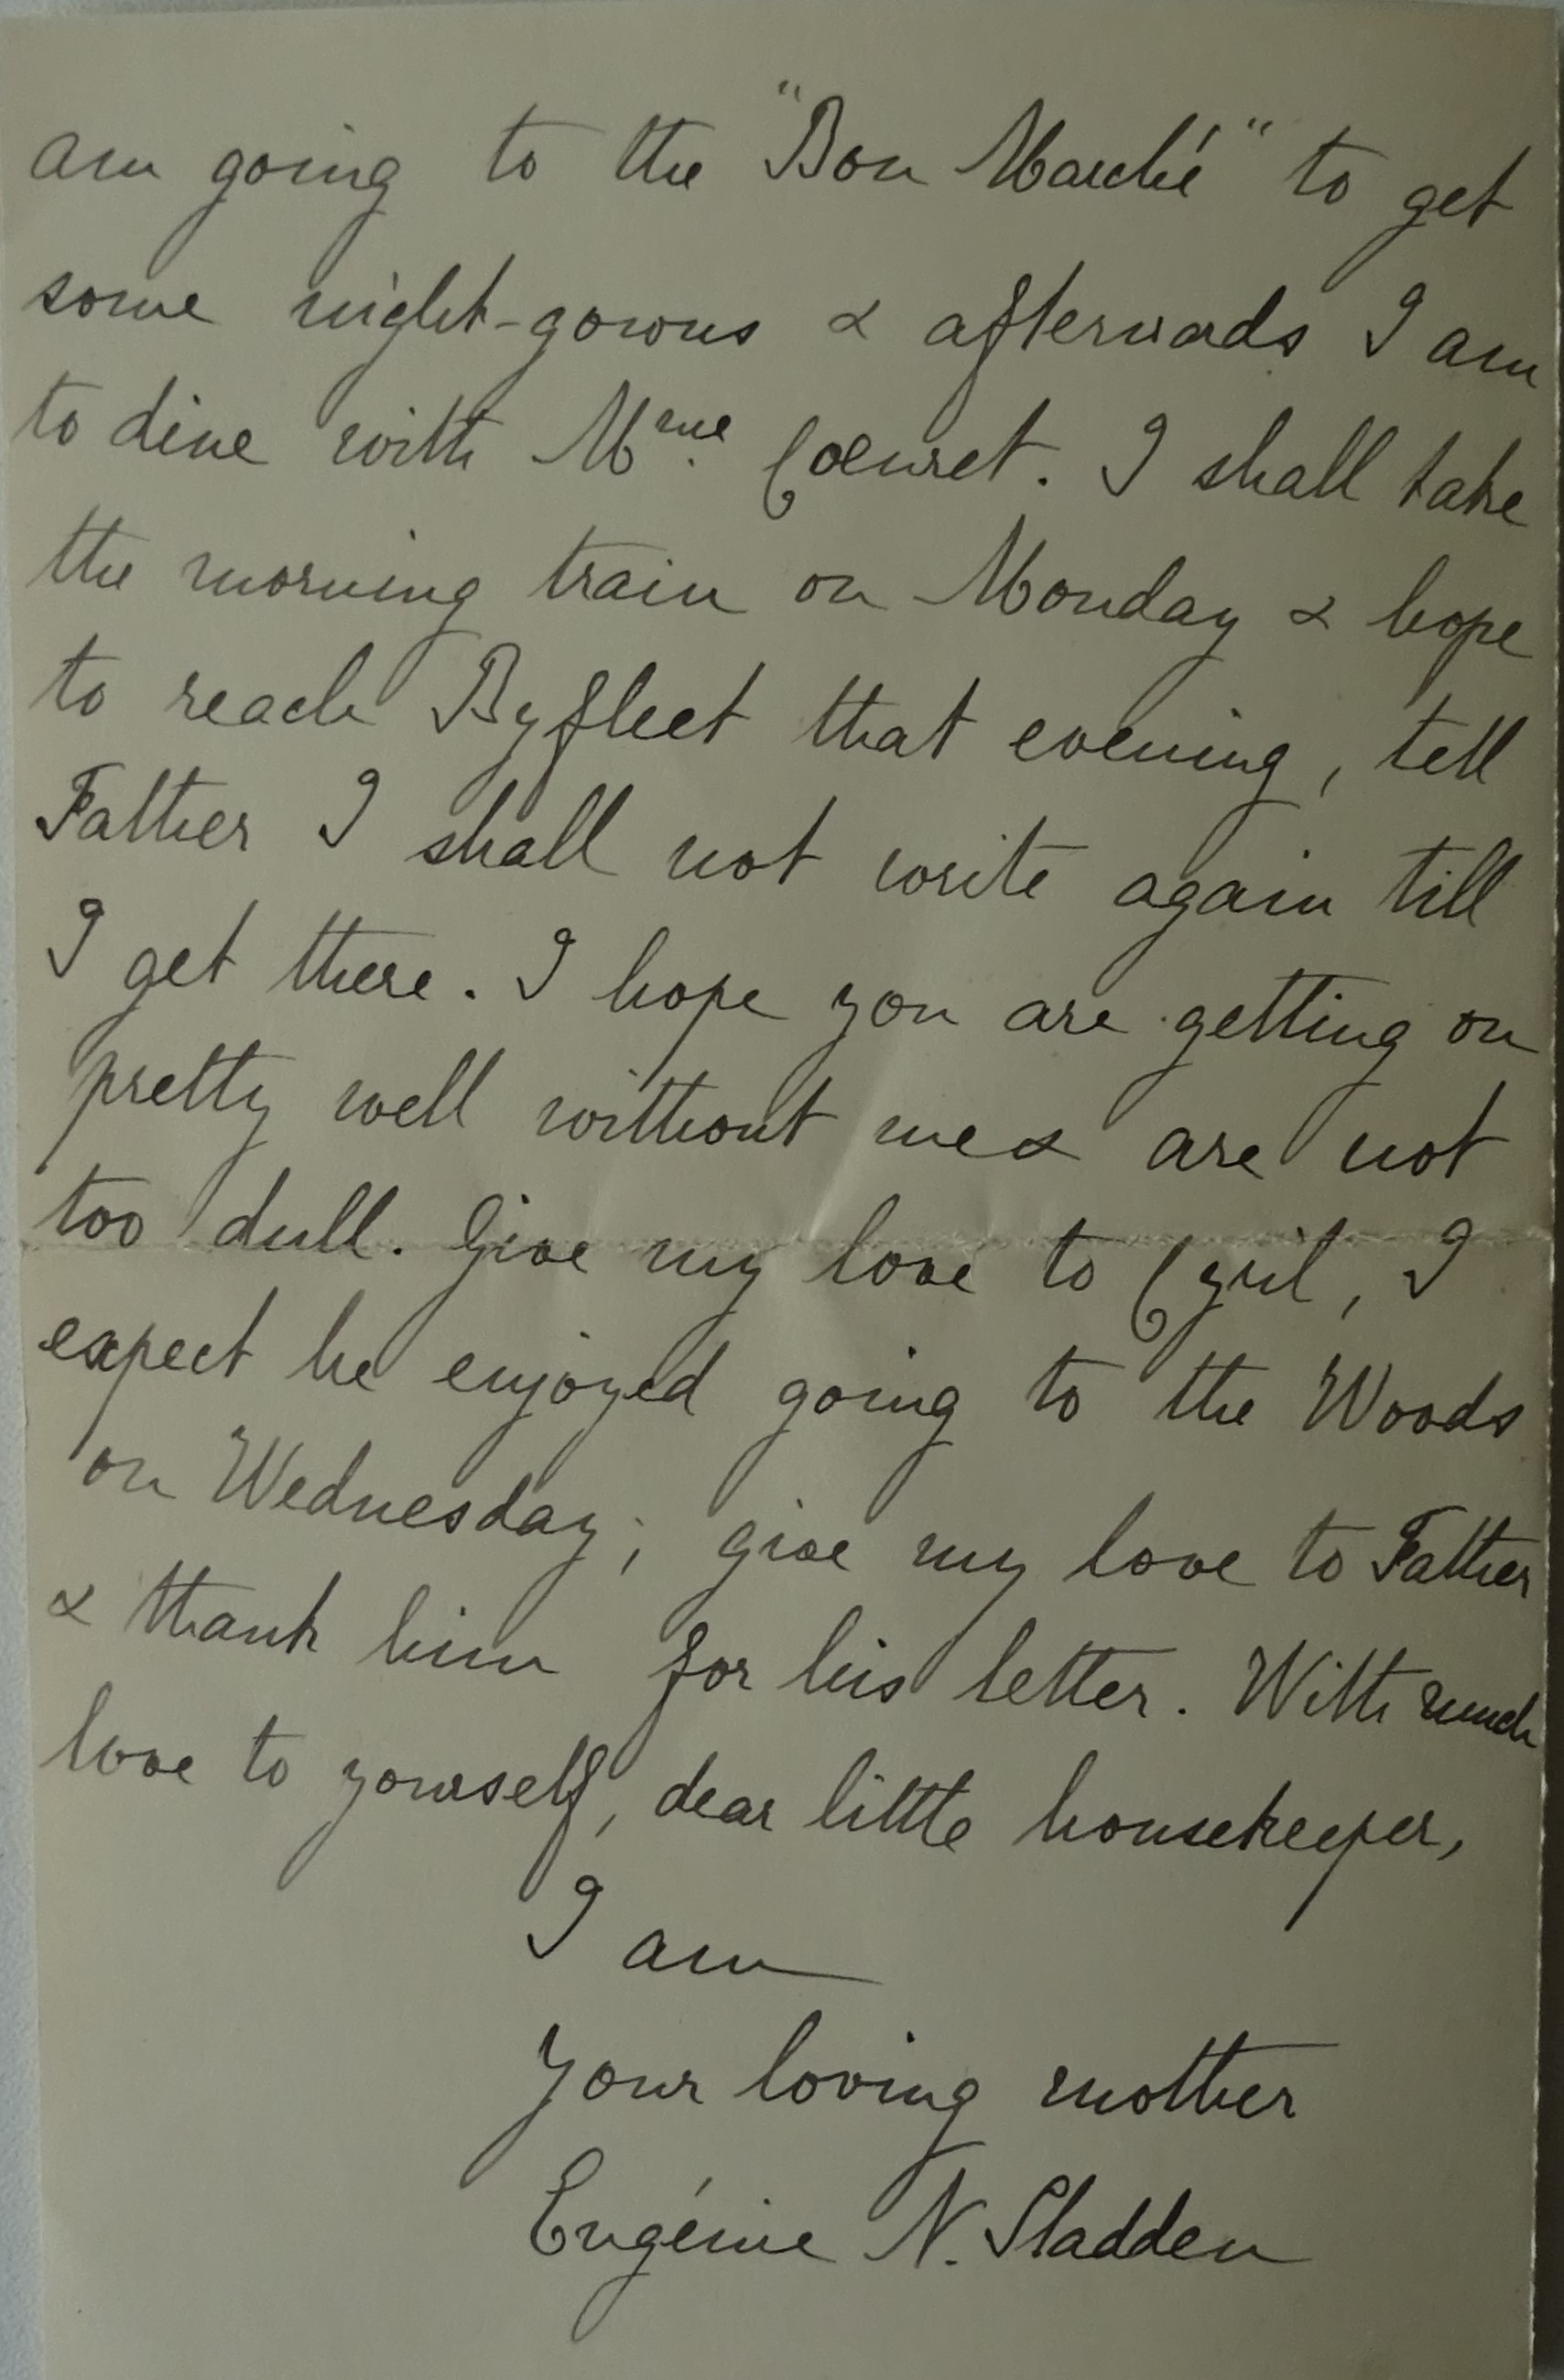 am going to the "Bon Marché" to get
some night-gowns & afterwards I am
to dine with Mme. Cœuret. I shall take
the morning train on Monday & hope
to reach Byfleet that evening, tell
Father I shall not write again till
I get there. I hope you are getting on
pretty well without me & are not
too dull. Give my love to Cyril, I
expect he enjoyed going to the Woods
on Wednesday; give my love to Father
& thank him for his letter. With much
love to yourself, dear little housekeeper,
I am
Your loving mother
Eugénie N. Sladden